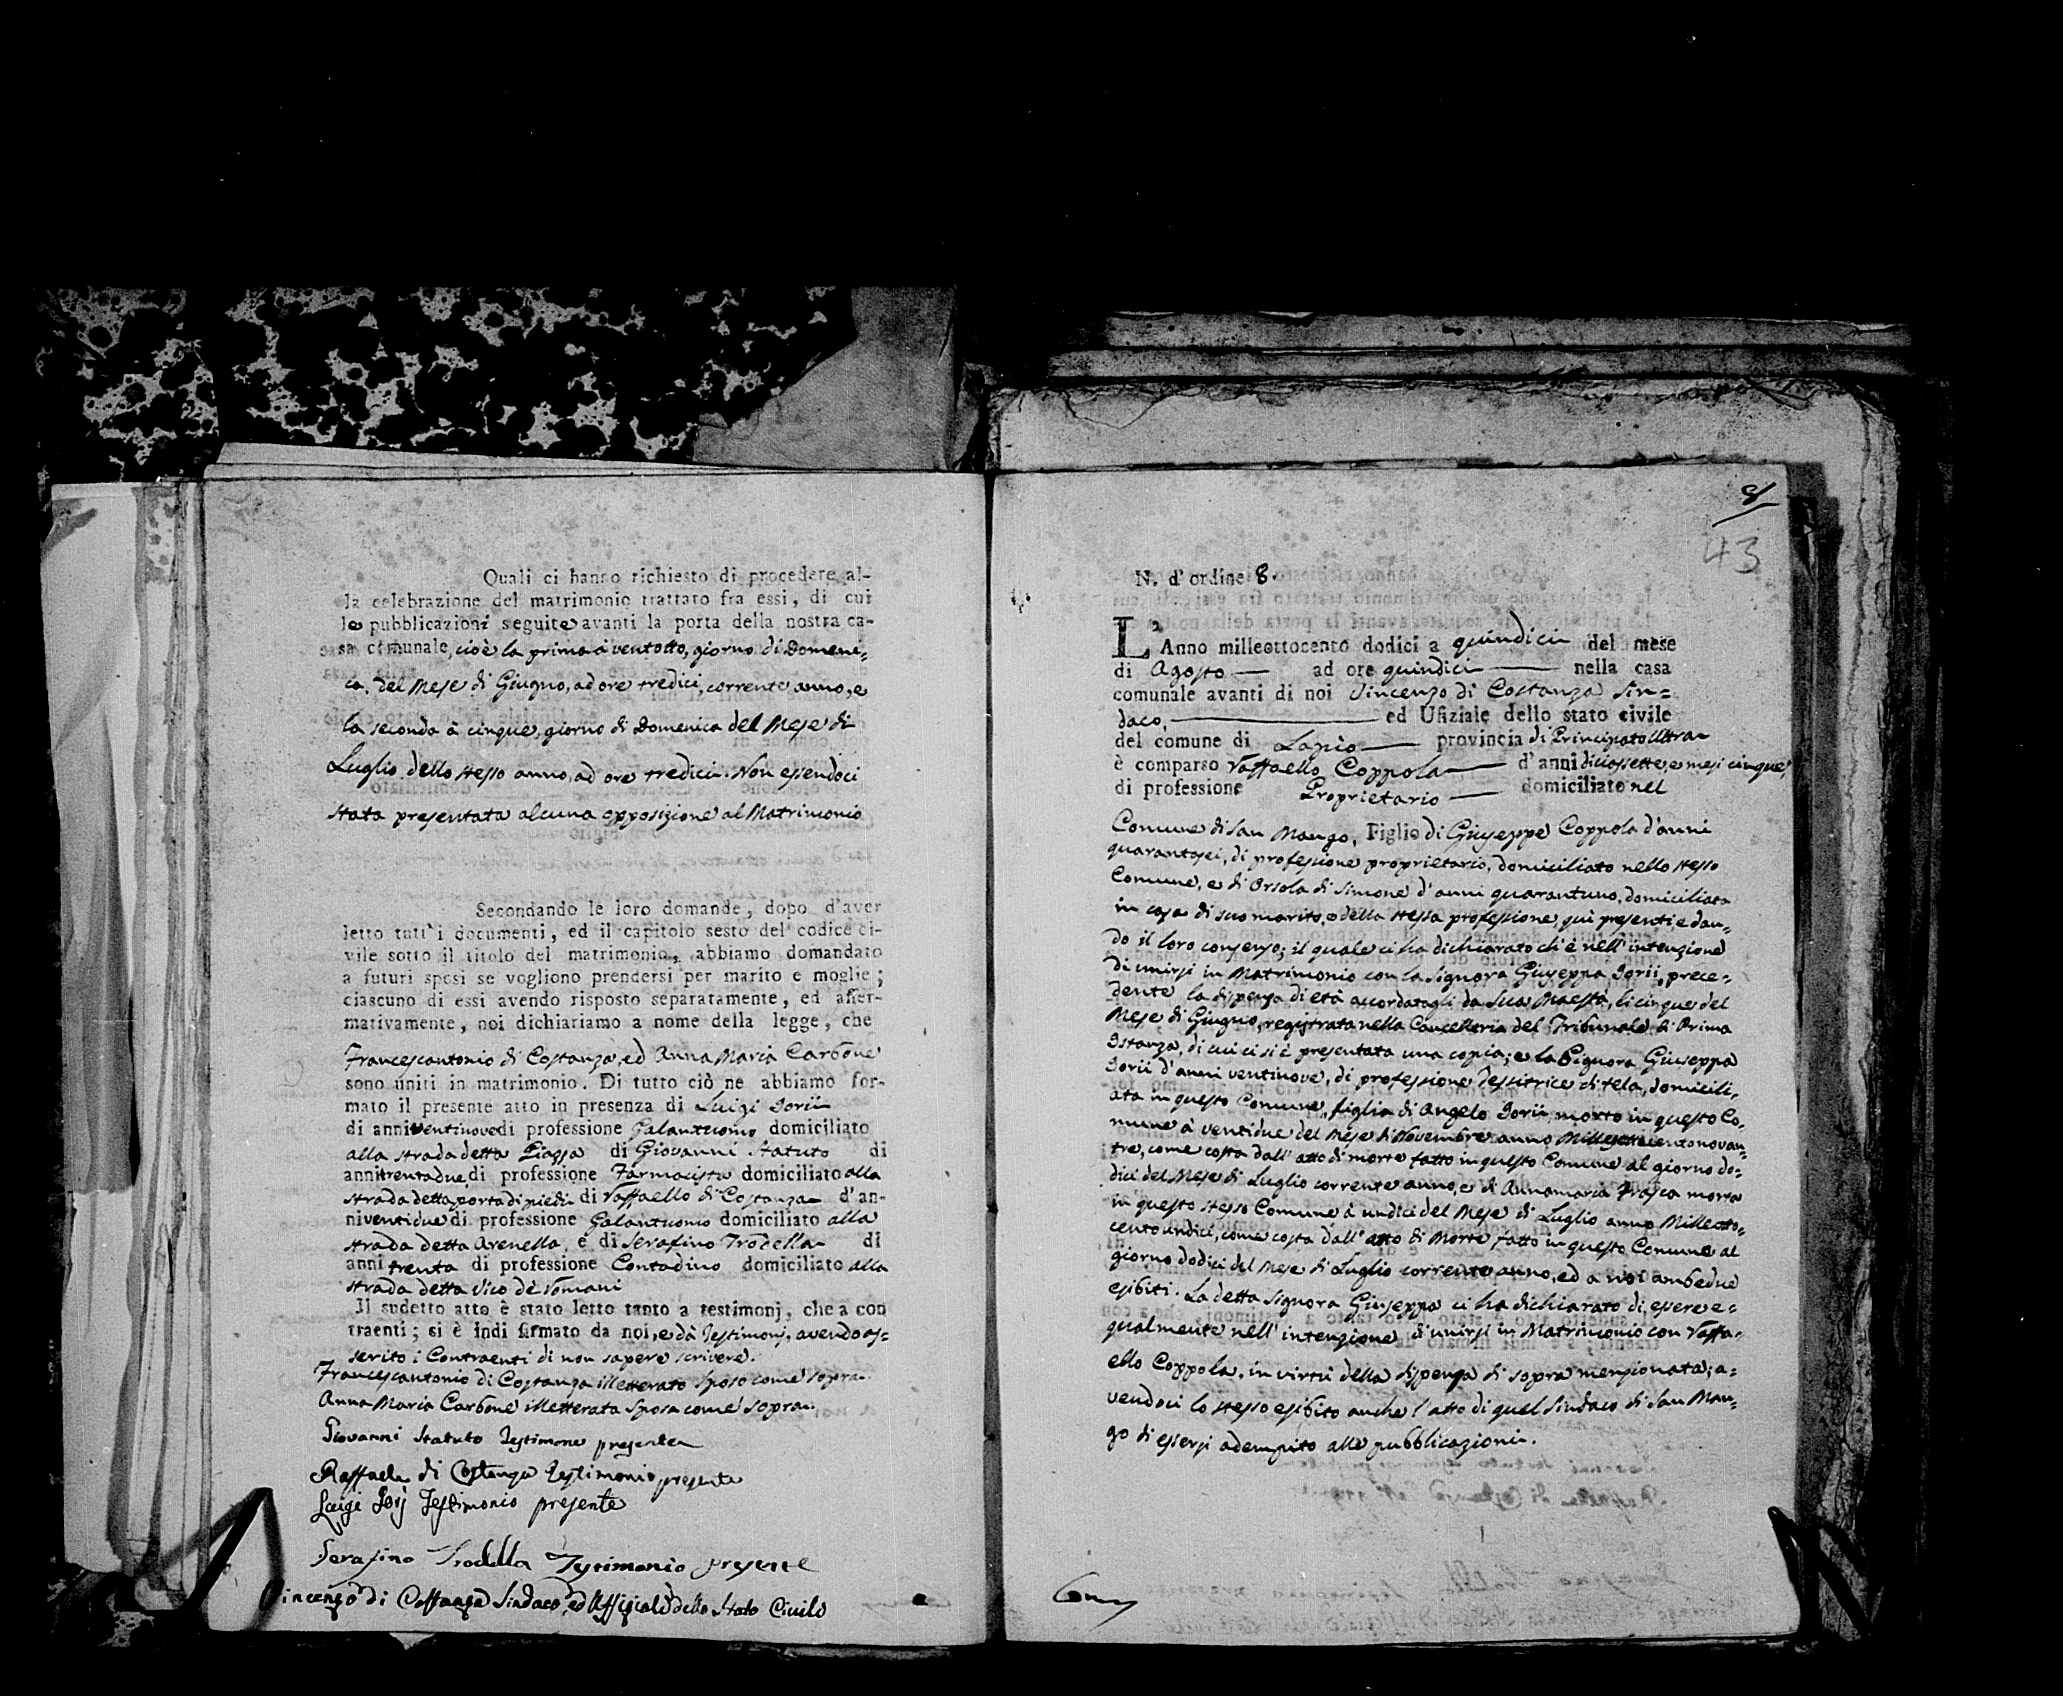 Quali ci hanno richiesto di procedere al-
la celebrazione del matrimonio trattato fra essi, di cui
le pubblicazioni seguite avanti la porta della nostra ca-
sa comunale, cioè la prima à ventotto, giorno di Domeni-
ca, del Mese di Giugno, ad ore tredici, corrente anno, e
la seconda à cinque, giorno di Domenica del Mese di
Luglio dello stesso anno, ad ore tredici. Non essendoci
stata presentata alcuna opposizione al Matrimonio
Secondando le loro domande, dopo d'aver
letto tutt'i documenti, ed il capitolo sesto del codice ci-
vile sotto il titolo del matrimonio, abbiamo domandato
a futuri sposi se vogliono prendersi per marito e moglie;
ciascuno di essi avendo risposto separatamente, ed affer-
mativamente, noi dichiariamo a nome della legge, che
Francescantonio di Costanza, ed Anna Maria Carbone
sono uniti in matrimonio. Di tutto ciò ne abbiamo for-
mato il presente atto in presenza di Luigi Iorii
di anni ventinove di professione Galantuomo domiciliato
alla strada detta Piazza di Giovanni Statuto di
anni trentadue, di professione Farmacista domiciliato alla
strada detta porta di piedi di Raffaello di Costanza d'an-
ni ventidue di professione Galantuomo domiciliato alla
strada detta Arenella, e di Serafino Trodella di
anni trenta di professione Contadino domiciliato alla
strada detta Vico de Romani
Il sudetto atto è stato letto tanto a testimonj, che a con
traenti; si è indi firmato da noi, e dà Testimonj, avendo as-
serito i Contraenti di non sapere scrivere.
Francescantonio di Costanza illetterato Sposo come sopra
Anna Maria Carbone illetterata Sposa come sopra
Giovanni Statuto Testimone presente
Raffaele di Costanza Testimonio presente
Luigi Iorij Testimonio presente
Serafino Trodella Testimonio presente
incenzo di Costanza Sindaco, ed Uffiziale dello Stato Civile
8
43
N. d'ordine 8.
L'Anno milleottocento dodici a quindici del mese
di Agosto ad ore quindici nella casa
comunale avanti di noi Vincenzo di Costanza Sin=
daco, ed Ufiziale dello stato civile
del comune di Lapio provincia di Principato Ultra
è comparso Raffaello Coppola d'anni diciassette, e mesi cinque,
di professione Proprietario domiciliato nel
Comune di San Mango, Figlio di Giuseppe Coppola d'anni
quarantasei, di professione proprietario, domiciliato nello stesso
Comune, e di Orsola di Simone d'anni quarantuno, domiciliata
in casa di suo marito, e della stessa professione, quì presenti e dan-
do il loro consenso; il quale ci ha dichiarato ch'è nell'intenzione
di unirsi in Matrimonio con la Signora Giuseppa Iorii, prece-
dente la dispensa di età accordatagli da Sua Maestà, li cinque del
Mese di Giugno, registrata nella Cancelleria del Tribunale di Prima
Istanza, di cui ci si è presentata una copia; e la Signora Giuseppa
Iorii d'anni ventinove, di professione Tessitrice di tela, domicili-
ata in questo Comune, figlia di Angelo Iorii morto in questo Co-
mune à ventidue del Mese di Novembre anno Millesettecentonovan-
tre, come costa dall'atto di morte fatto in questo Comune al giorno do-
dici del Mese di Luglio corrente anno, e di Annamaria morta
in questo stesso Comune à undici del Mese di Luglio anno Milleotto-
cento undici, come costa dall'atto di Morte fatto in questo Comune al
giorno dodici del Mese di Luglio corrente anno, ed a noi ambedue
esibiti. La detta Signora Giuseppa ci ha dichiarato di essere e-
gualmente nell'intenzione di unirsi in Matrimonio con Raffa-
ello Coppola, in virtù della dispensa di sopra menzionata; a=
vendoci lo stesso esibito anche l'atto di quel Sindaco di San Man-
go di essersi adempito alle pubblicazioni.